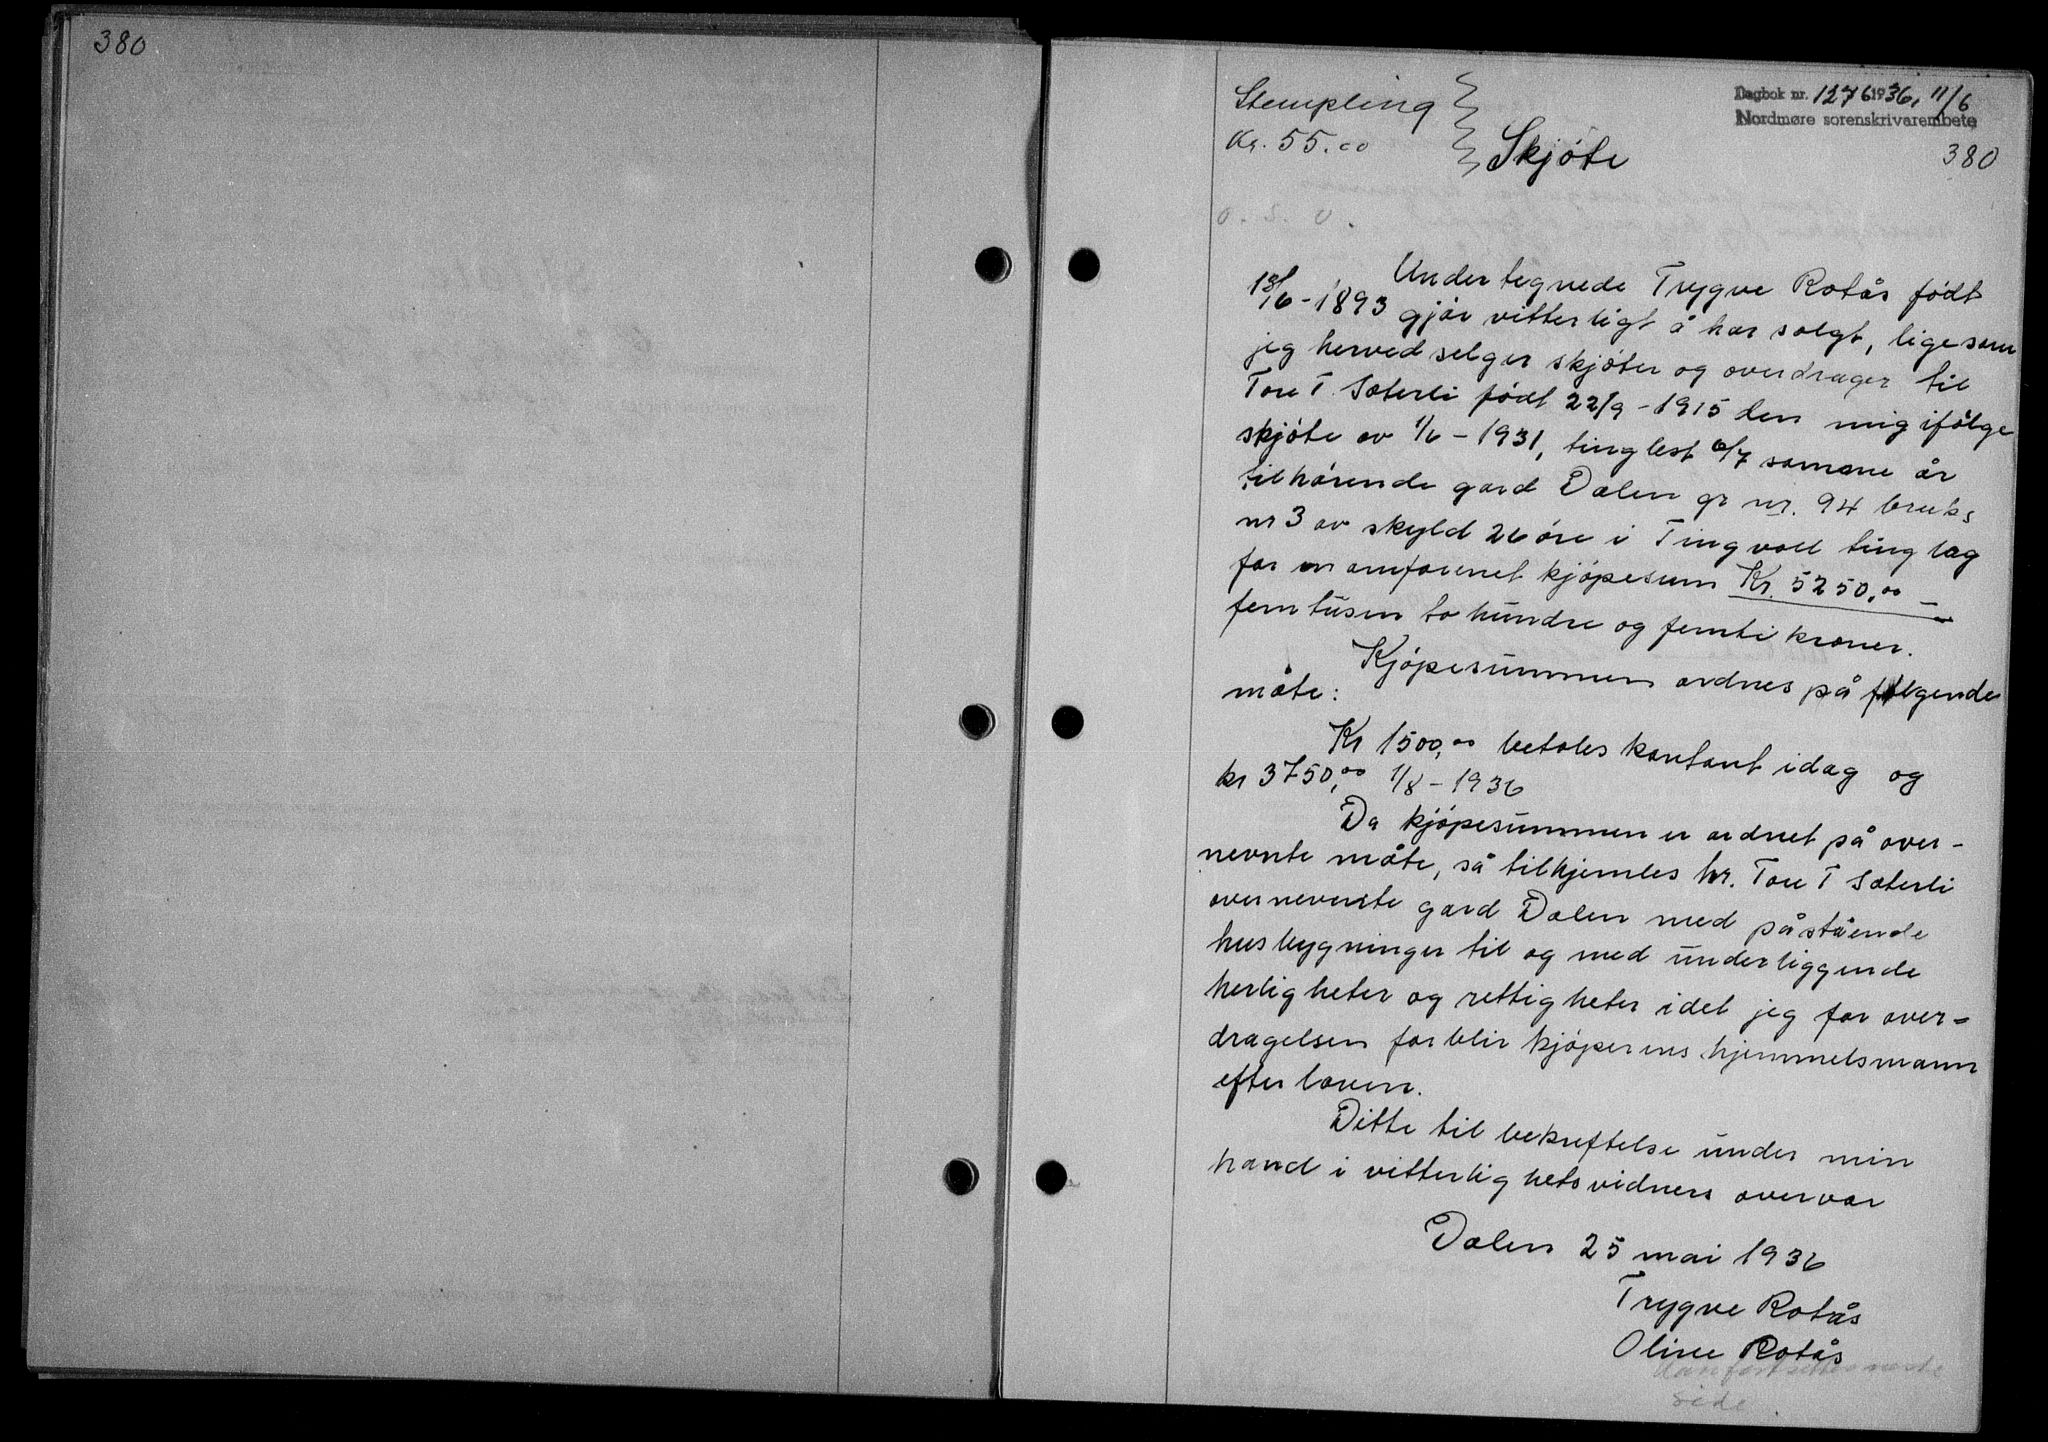 380
Stempling
Kr. 55.00
Skjöte
Dagbok nr. 1276 1936, 11/6
Nordmøre sorenskrivarembete
380
o. s. v.
Undertegnede Trygve Rotås født
13/6-1893 gjör vitterligt å har solgt, ligesom
jeg herved selger skjöter og overdrager til
Tore T. Sæterli födt 22/9-1915 den mig ifölge
skjöte av 1/6-1931, tinglest 6/7 samme år
tilhörende gard Dalen gr nr. 94 bruks
nr 3 av skyld 26 öre i Tingvoll tinglag
for en omforenet kjöpesum Kr. 5250,00 —
femtusen to hundre og femti kroner.
Kjöpesummen ordnes på følgende
måte:
Kr 1500,00 betales kontant idag og
kr 3750,00 1/8-1936
Da kjöpesummen er ordnet på over-
nevnte måte, så tilhjemles hr. Tore T Sæterli
overnevnte gard Dalen med påstående
husbygninger til og med underliggende
herligheter og rettigheter idet jeg for over-
dragelsen forblir kjöperens hjemmelsmann
efter loven.
Dette til bekreftelse under min
hand i vitterlighetsvidners overvær
Dalen 25 mai 1936
Trygve Rotås
Oline Rotås
fortsettes næste
side.